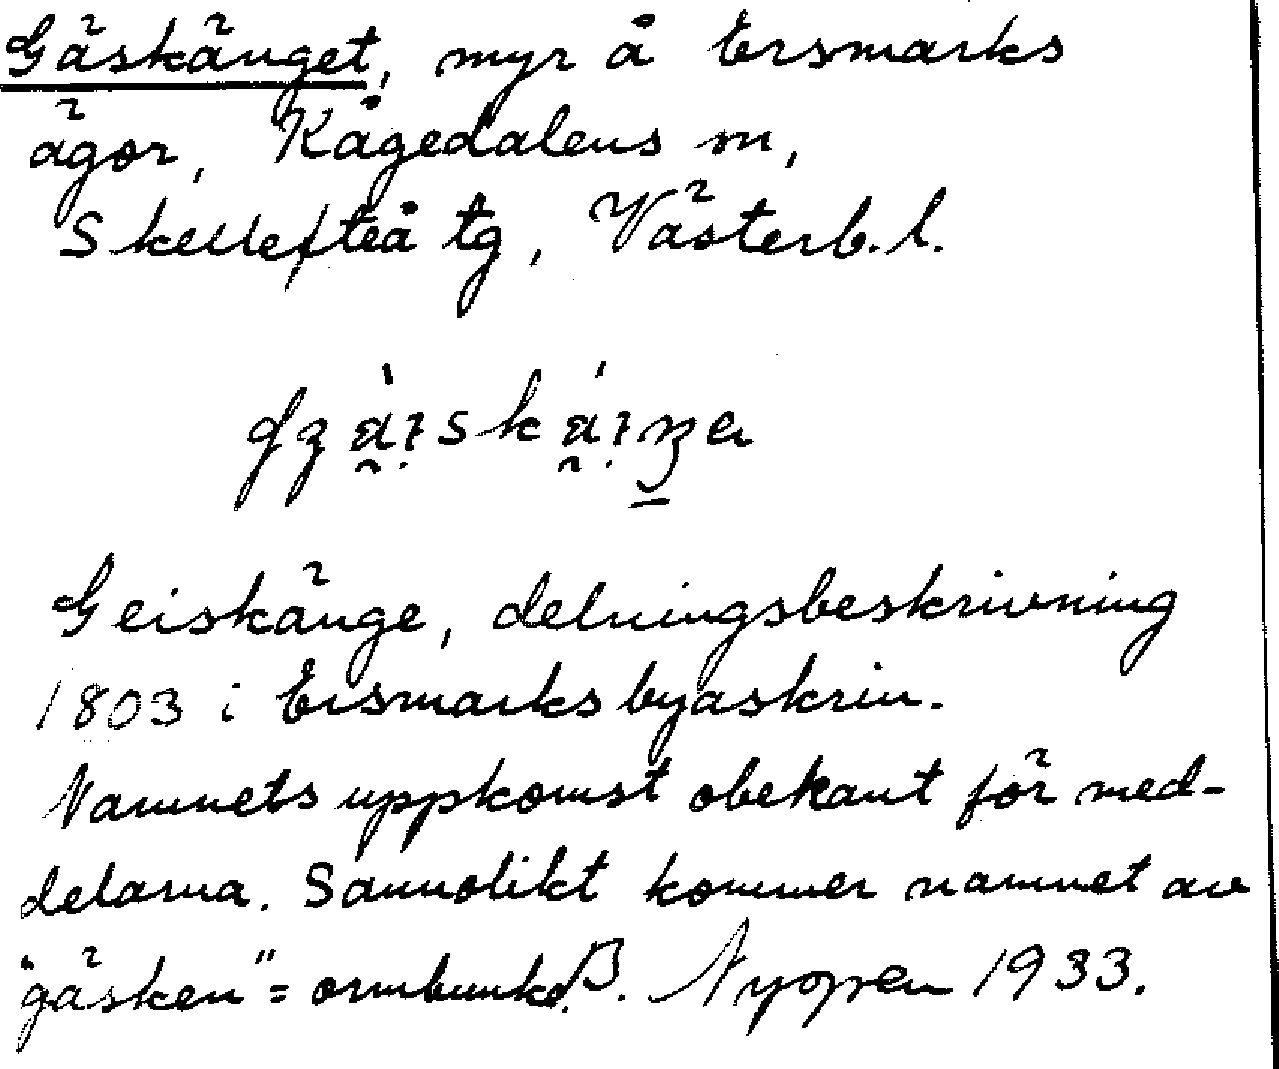 Gäskänget, myr å Ersmarks
ägor, Kågedalens m,
Skellefteå tg, Västerb.l.
Geiskänge, delningsbeskrivning
1803 i Ersmarks byaskrin.
Namnets uppkomst obekant för med-
delarna. Sannolikt kommer namnet av
"gäsken" = ormbunke. B. Nygren 1933.